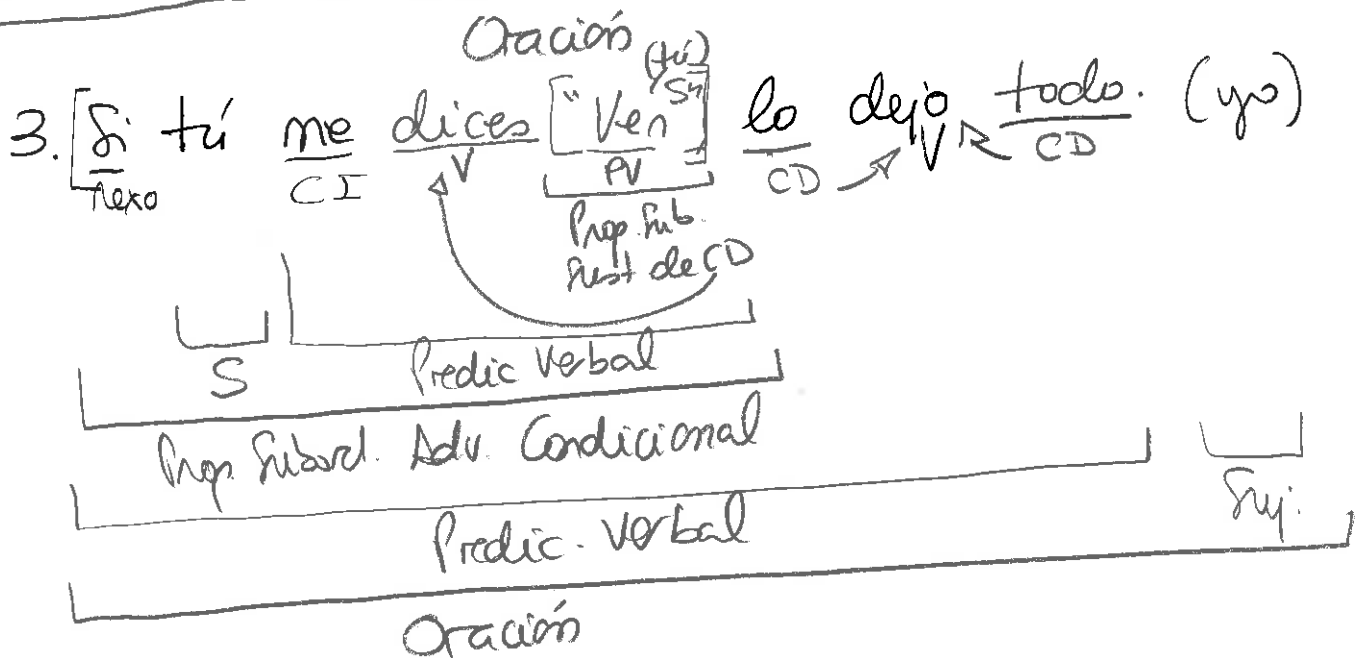 Oración
(tú)
3. [Si tú me dices ["Ven"] lo dejo todo. (yo)
S
nexo CI V PV CD V CD
Prop. Sub.
Sust de CD
S Predic Verbal
Prop. Subord. Adv. Condicional
Predic. Verbal Suj.
Oración